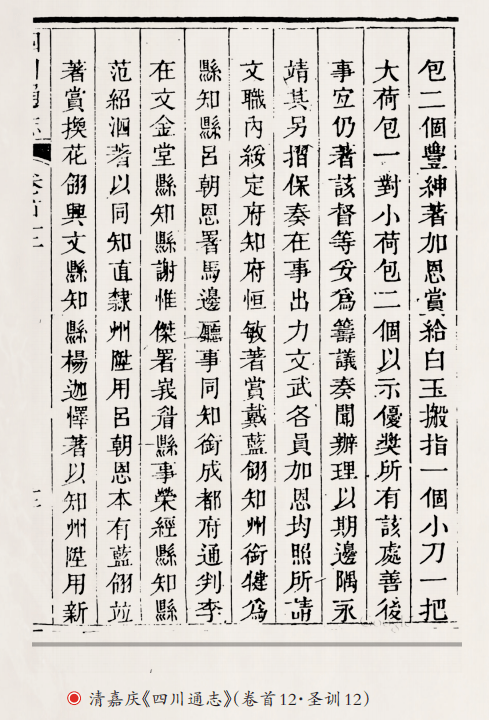 包二個豐紳著加恩賞給白玉搬指一個小刀一把
大荷包一對小荷包二個以示優奬所有該處善後
事宜仍著該督等妥爲籌議奏聞辦理以期邊隅永
靖其另摺保奏在事出力文武各員加恩均照所請
文職內綏定府知府恒敏著賞戴藍翎知州銜犍爲
縣知縣呂朝恩署馬邊廳事同知銜成都府通判李
在文金堂縣知縣謝惟傑署峩眉縣事榮經縣知縣
范紹泗著以同知直隸州陞用呂朝恩本有藍翎竝
著賞換花翎興文縣知縣楊迦懌著以知州陞用新
四川通志
卷首十二
清嘉庆《四川通志》(卷首12·圣训12)